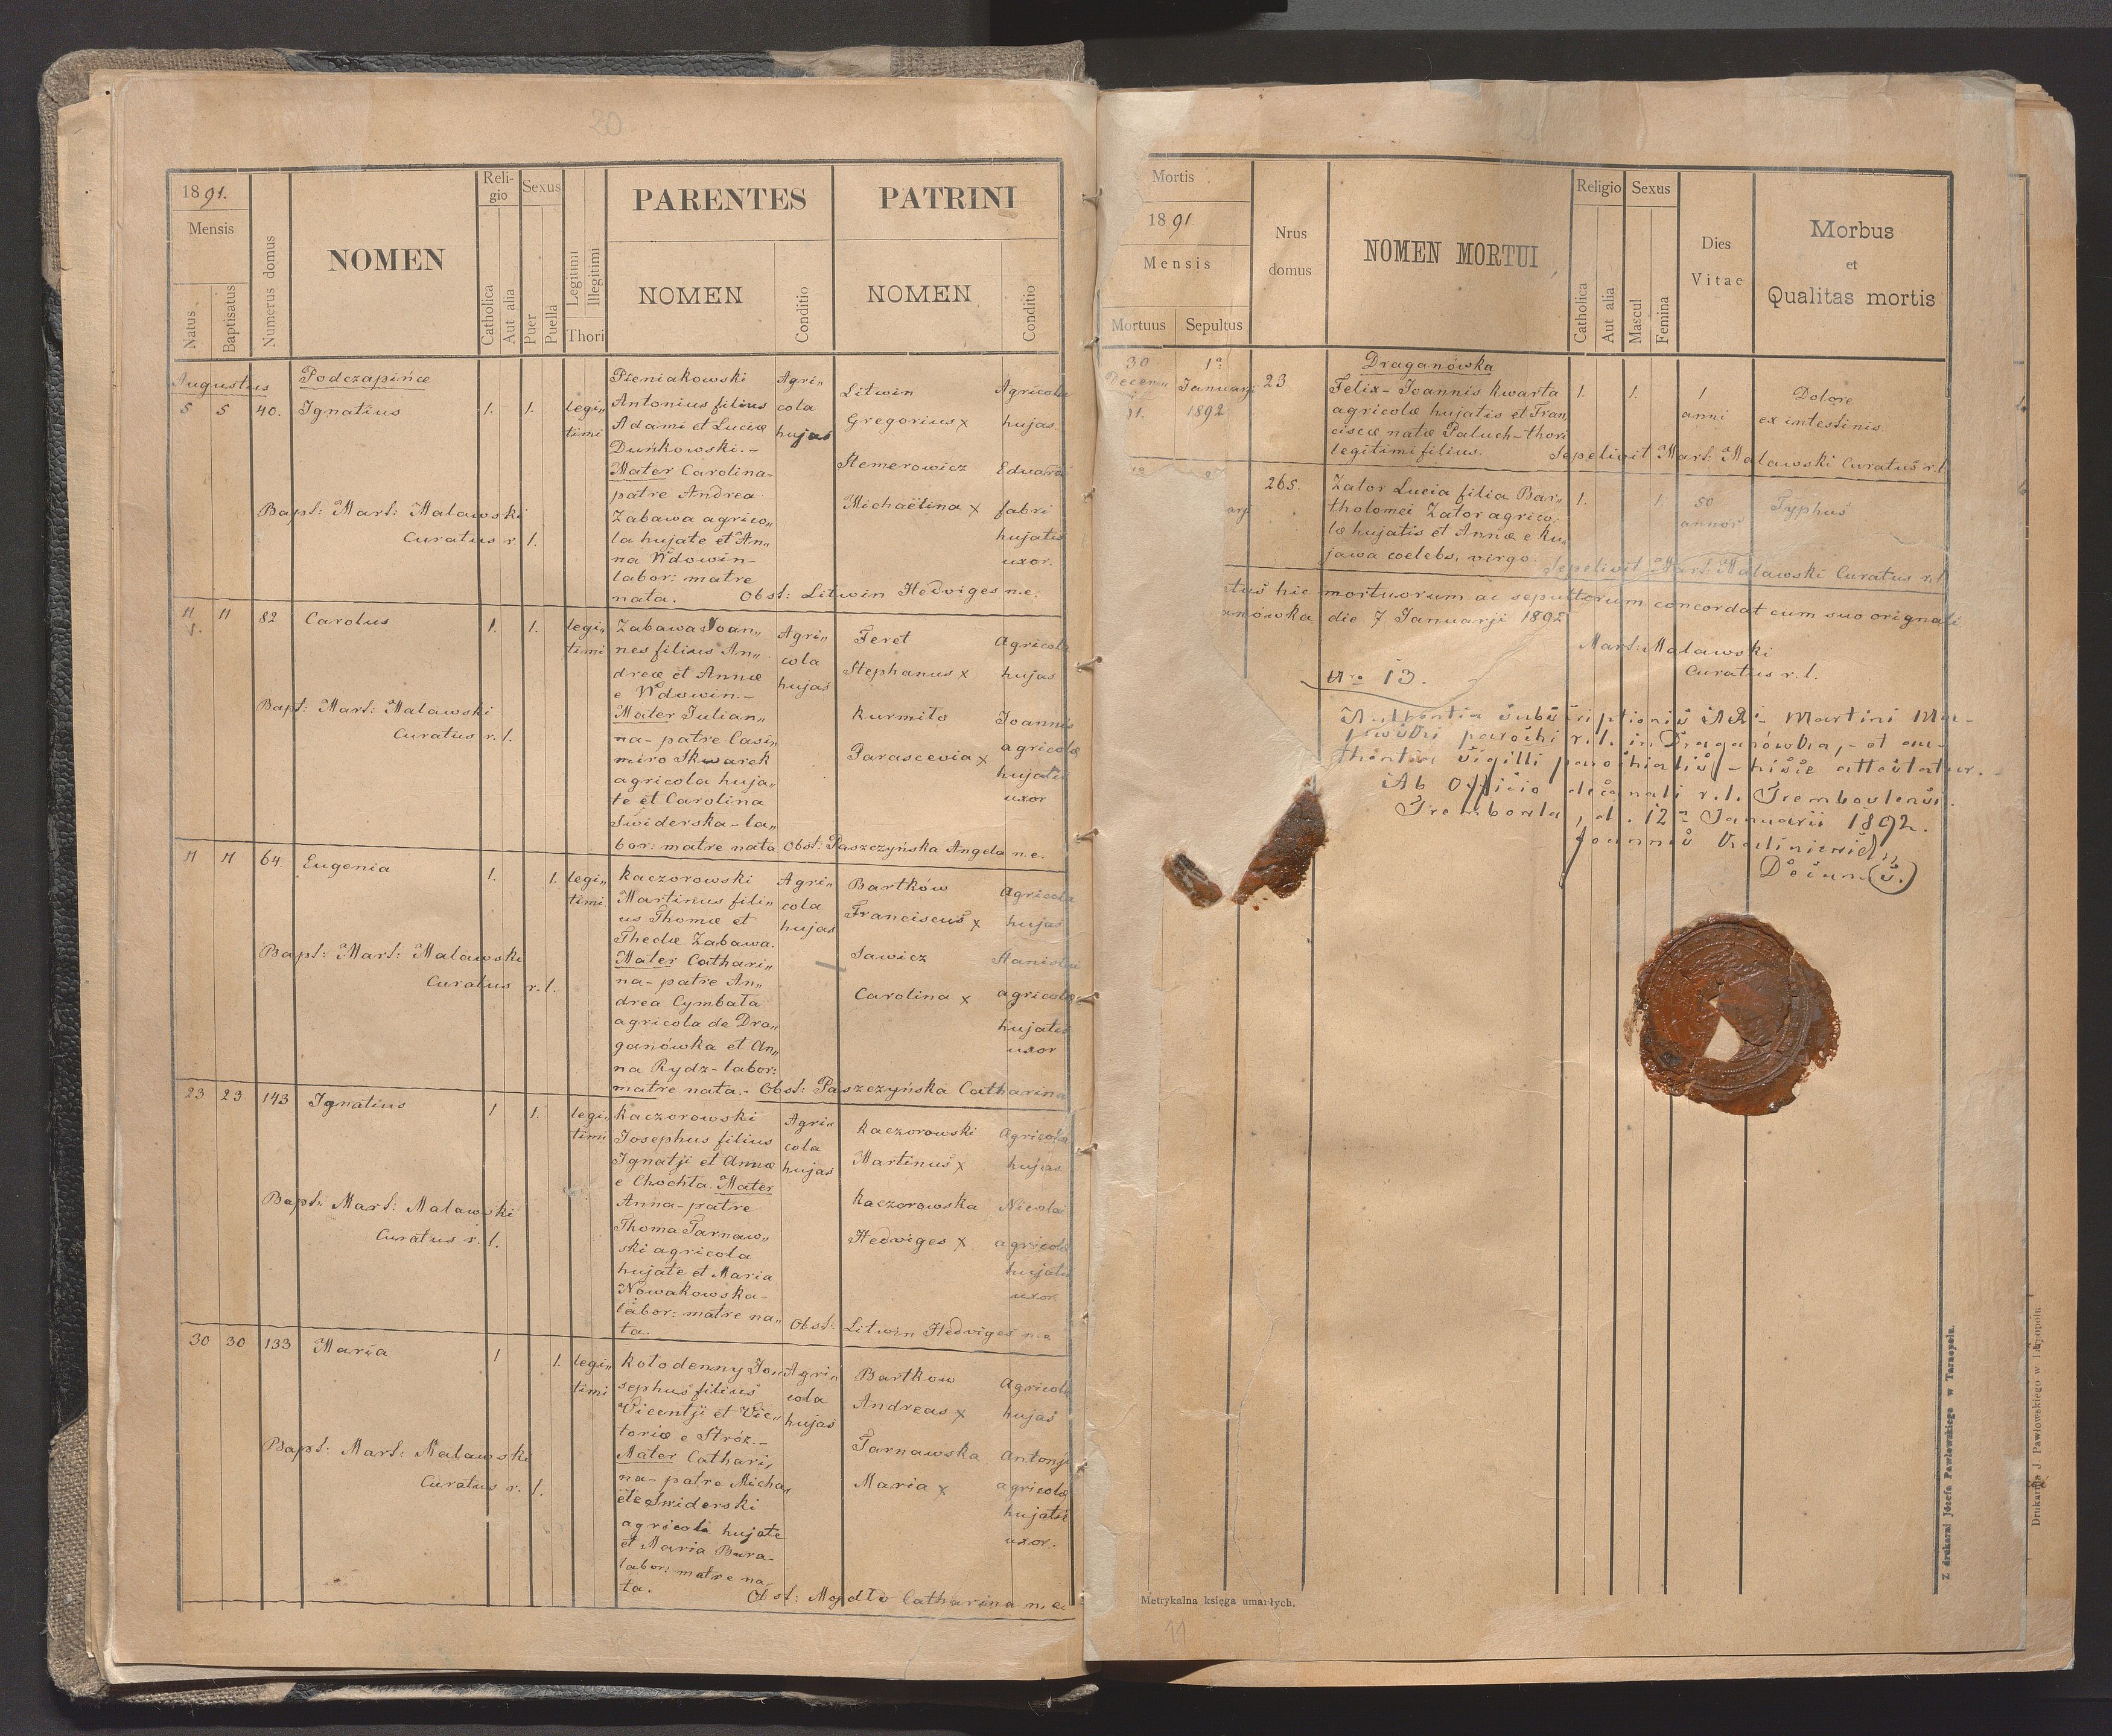 20
1891.
Mensis
Natus
Baptisatus
Numerus domus
NOMEN
Reli-
gio
Catholica
Aut alia
Sexus
Puer
Puella
Legitimi
Illegitimi
Thori
PARENTES
NOMEN
Conditio
PATRINI
NOMEN
Conditio
Augustus
Podczapińce
5 5 40. Ignatius 1. 1. legi„
timi
Pieniakowski
Antonius filius
Adami et Luciæ
Duńkowski.-
Mater Carolina-
patre Andrea
Zabawa agrico„
la hujate et An„
na Wdowin-
labor: matre
nata.
Agri„
cola
hujas
Litwin
Gregorius x
Stemerowicz
Michaëlina x
Agricola
hujas
Eduardi
fabri
hujatis
uxor.
Bapt: Mart: Malawski
Curatus r. l.
Obst: Litwin Hedviges n.e.
11 11 82 Carolus 1. 1. legi„
timi
Zabawa Joan„
nes filius An„
dreæ et Annæ
e Wdowin.-
Mater Julian„
na- patre Casi„
miro Skwarek
agricola huja„
te et Carolina
Swiderska - la„
bor: matre nata
Agri„
cola
hujas
Feret
Stephanus x
Kurmiło
Parascevia x
Agricola
hujas
Joannis
agricolæ
hujatis
uxor
Bapt: Mart: Malawski
Curatus r. l.
Obst: Paszczyńska Angela n.e.
11 11 64 Eugenia 1. 1. legi„
timi
Kaczorowski
Martinus fili„
us Thomæ et
Theclæ Zabawa.
Mater Cathari„
na- patre An„
drea Cymbała
agricola de Dra„
ganówka et An„
na Rydz- labor:
matre nata.-
Agri„
cola
hujas
Bartków
Franciscus x
Sawicz
Carolina x
Agricola
hujas
Stanislai
agricolæ
hujatis
uxor
Bapt: Mart: Malawski
Curatus r. l.
Obst: Paszczyńska Catharina
23 23 143 Ignatius 1 1. legi„
timi
Kaczorowski
Josephus filius
Ignatji et Annæ
e Chochta. Mater
Anna- patre
Thoma Tarnaw„
ski agricola
hujate et Maria
Nowakowska-
labor: matre na„
ta.
Agri„
cola
hujas
Kaczorowski
Martinus x
Kaczorowska
Hedviges x
Agricola
hujas
Nicolai
agricolæ
hujatis
uxor
Bapt: Mart: Malawski
Curatus r. l.
Obst: Litwin Hedviges n.e
30 30 133 Maria 1 1. legi„
timi
Kołodenny Jo„
sephus filius
Vicentji et Vic„
toriæ e Stróz.-
Mater Cathari„
na- patre Micha„
ële Swiderski
agricola hujate
et Maria Bura-
labor: matre na„
ta.
Agri„
cola
hujas
Bartkow
Andreas x
Tarnawska
Maria x
Agricola
hujas
Antonji
agricolæ
hujatis
uxor.
Bapt: Mart: Malawski
Curatus r. l.
Obst: Mojdło Catharina n.e.
Mortis
1891
Mensis
Mortuus
Sepultus
Nrus
domus
NOMEN MORTUI
Religio
Catholica
Aut alia
Sexus
Mascul
Femina
Dies
Vitae
Morbus
et
Qualitas mortis
Draganówka
30
91.
1ª
Januarji
1892
23
Felix- Joannis Kwarta
agricolæ hujatis et Fran„
ciscæ natæ Paluch- thori
legitimi filius.
1. 1. 1
anni
Dolore
ex intestinis
Sepelivit Mart: Malawski Curatus r.l.
265.
Zator Lucia filia Bar„
tholomei Zator agrico„
læ hujatis et Annæ e Ku„
jawa coelebs, virgo
1. 1. 50
annor
Typhus
Sepelivit Mart: Malawski Curatus r.l.
tus hic mortuorum ac sepultorum concordat cum suo orignali
anówka die 7 Januarji 1892
Mart: Malawski
Curatus r. l.
Nro 13.
subscriptionis Martini
parochi r. l. in Draganówka, - et au-
sigilli parochialis - hisce attestatur.
Ab Officio decanali r. l. Trembovlensi.
Trembowla, d. 12a Januarii 1892.
Metrykalna księga umarłych.
Z drukarni Józefa Pawłowskiego w Tarnopolu.
Drukarnia J. Pawłowskiego w Tarnopolu.